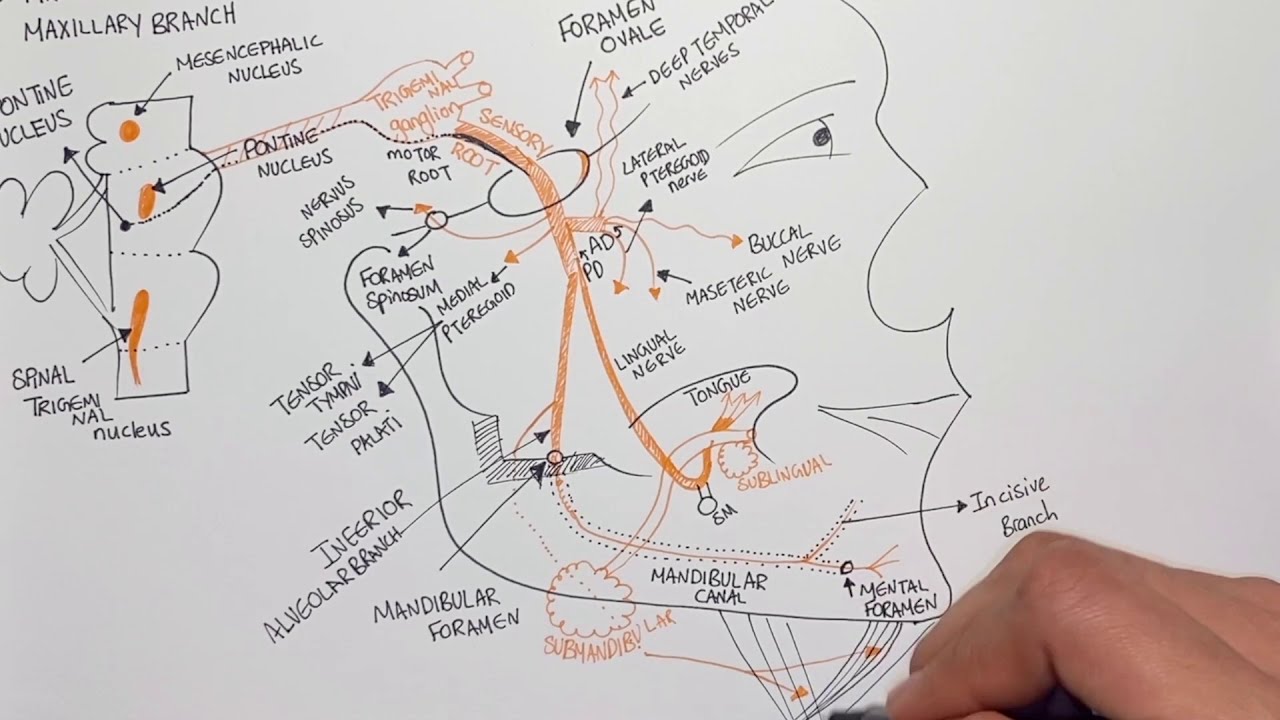 MAXILLARY BRANCH
MESENCEPHALIC
NUCLEUS
PONTINE
NUCLEUS
SPINAL
TRIGEMI
NAL
nucleus
TRIGEMI
NAL
ganglion
MOTOR
ROOT
SENSORY
ROOT
FORAMEN
OVALE
DEEP TEMPORAL
NERVES
LATERAL
PTEREGOID
nerve
NERVUS
SPINOSUS
FORAMEN
SPINOSUM
MEDIAL
PTEREGOID
AD
PD
BUCCAL
MASETERIC NERVE
NERVE
TENSOR
TYMPNI
TENSOR
PALATI
LINGUAL
NERVE
TONGUE
SUBLINGUAL
SM
INFERIOR
ALVEOLAR BRANCH
MANDIBULAR
FORAMEN
MANDIBULAR
CANAL
Incisive
Branch
MENTAL
FORAMEN